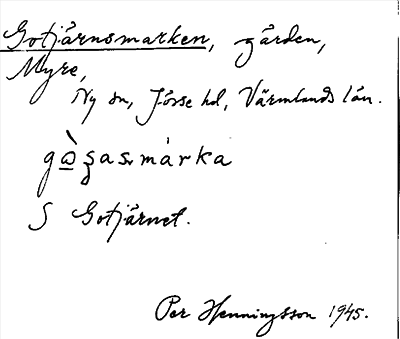 Gotjärnsmarken, gården,
Myre,
Ny sn, Jösse hd, Värmlands län.
S Gotjärnet.
Per Henningsson 1945.